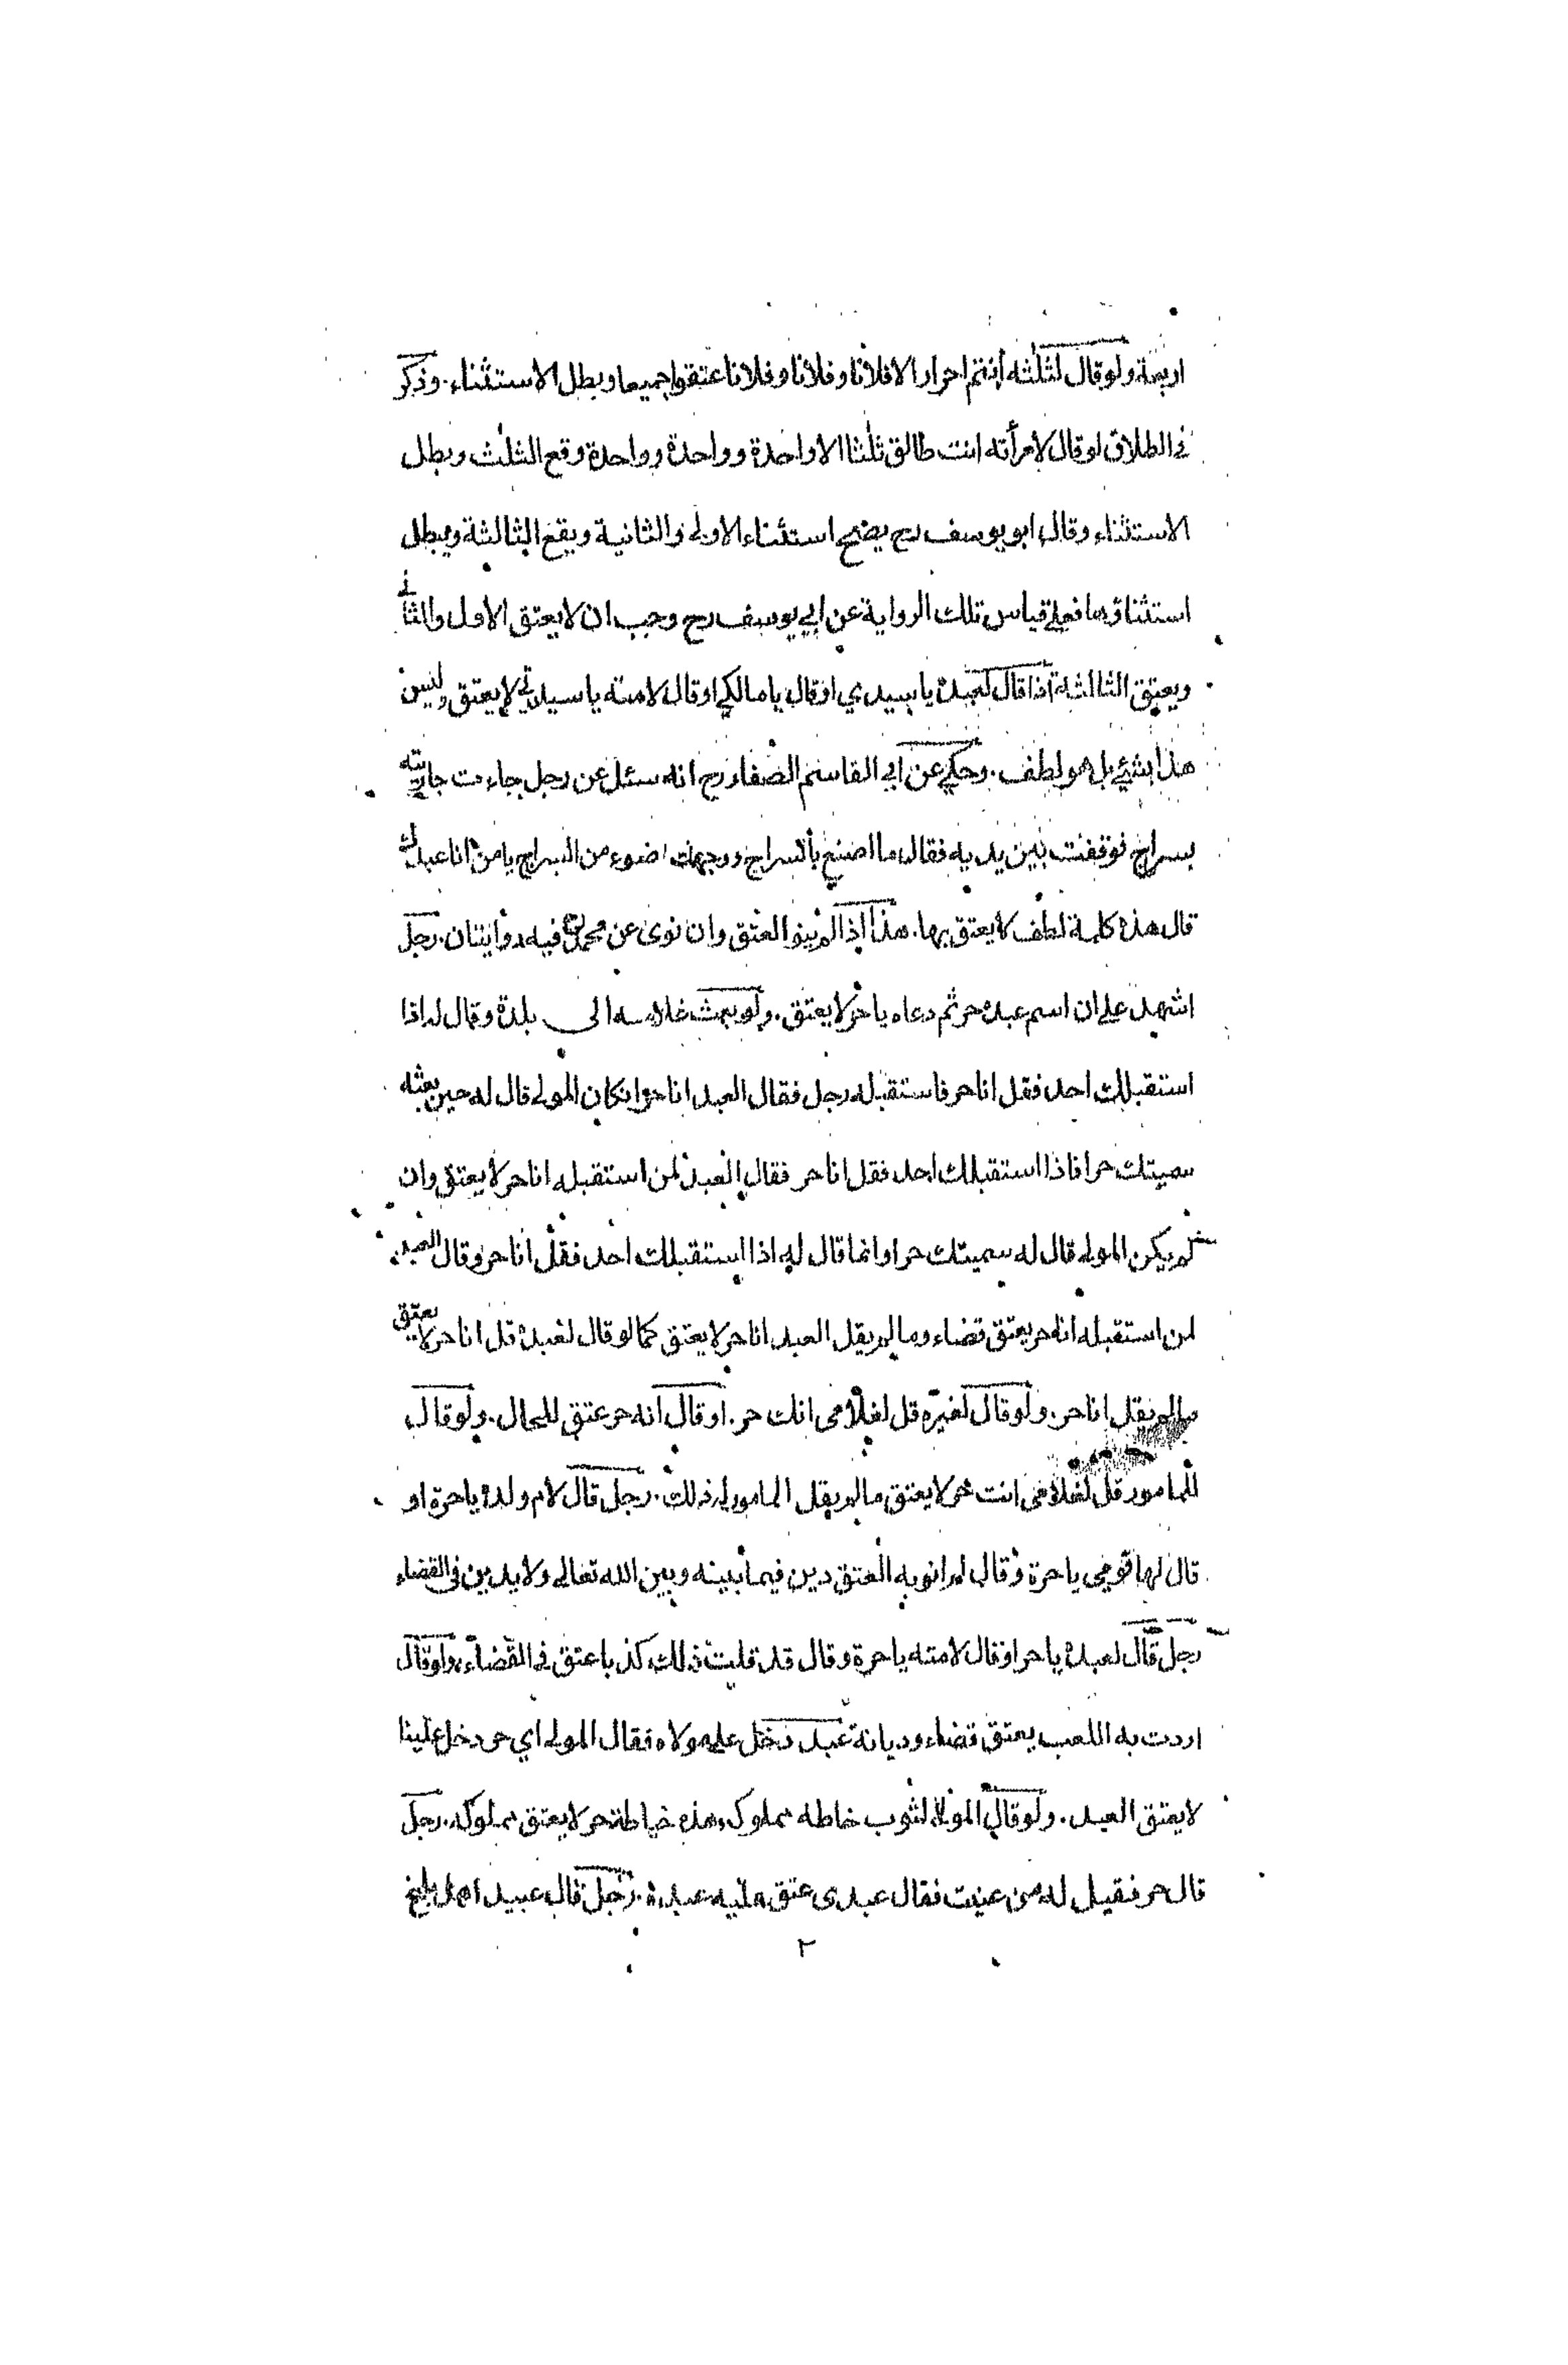 اربعة ولو قال لثلثه انتم احرار الا فلانا وفلانا وفلانا عتقوا جميعا وبطل الاستثناء. وذكر
في الطلاق لو قال لامرأته انت طالق ثلثا الا واحدة وواحدة وواحدة وقع الثلث وبطل
الاستثناء وقال ابو يوسف رح يصح استثناء الاولى والثانية ويقع الثالثة ويبطل
استثناؤها فعلى قياس تلك الرواية عن ابي يوسف رح وجب ان لا يعتق الاول والثاني
ويعتق الثالثة اذا قال لعبده يا سيدي او قال يا مالكي او قال لامته يا سيدتي لا يعتق وليس
هذا بشيئ بل هو لطف. وحكي عن ابي القاسم الصفار رح انه سئل عن رجل جاءت جاريته
بسراج فوقفت بين يديه فقال ما اصنع بالسراج ووجهك اضوء من السراج يا من انا عبدك
قال هذه كلمة لطف لا يعتق بها. هذا اذا لم ينو العتق وان نوى عن محمد رح فيه روايتان. رجل
اشهد على ان اسم عبده حر ثم دعاه يا حر لا يعتق. ولو بعث غلامه الى بلدة وقال له اذا
استقبلك احد فقل انا حر فاستقبله رجل فقال العبد انا حر ان كان المولى قال له حين بعثه
سميتك حرا فاذا استقبلك احد فقل انا حر فقال العبد لمن استقبله انا حر لا يعتق وان
لم يكن المولى قال له سميتك حرا وانما قال له اذا استقبلك احد فقل انا حر وقال العبد
لمن استقبله انه حر يعتق قضاء وما لم يقل العبد انا حر لا يعتق كما لو قال لعبده قل انا حر لا يعتق
ما لم يقل انا حر. ولو قال لغيره قل لغلامي انك حر. او قال انه حر عتق للحال. ولو قال
للمامور قل لغلامي انت حر لا يعتق ما لم يقل المامور له ذلك. رجل قال لام ولده يا حرة او
قال لها قومي يا حرة وقال لم انو به العتق دين فيما بينه وبين الله تعالى ولا يدين في القضاء
رجل قال لعبده يا حر او قال لامته يا حرة وقال قد قلت ذلك كذبا عتق في القضاء ولو قال
اردت به اللعب يعتق قضاء وديانة عبد دخل على مولاه فقال المولى اي حر دخل علينا
لا يعتق العبد. ولو قال المولى لثوب خاطه مملوكه هذه خياطة حر لا يعتق مملوكه. رجل
قال حر فقيل له من عنيت فقال عبدى عتق عليه عبده. رجل قال عبيد اهل بلخ
٢